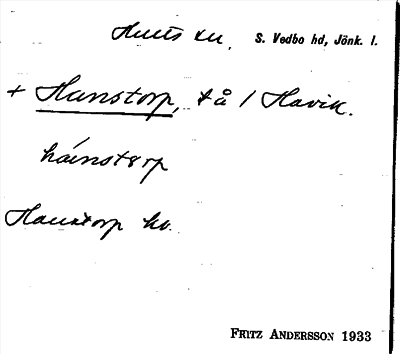 Hults sn. S. Vedbo hd, Jönk. l.
+ Hanstorp, tå / Havik.
hánstɛrp
Hanstorp hv.
FRITZ ANDERSSON 1933